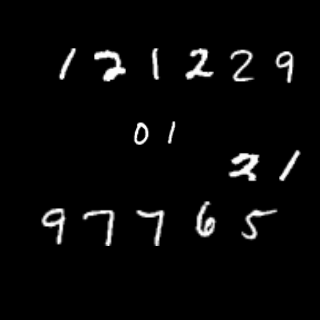 121229
01
21
97765